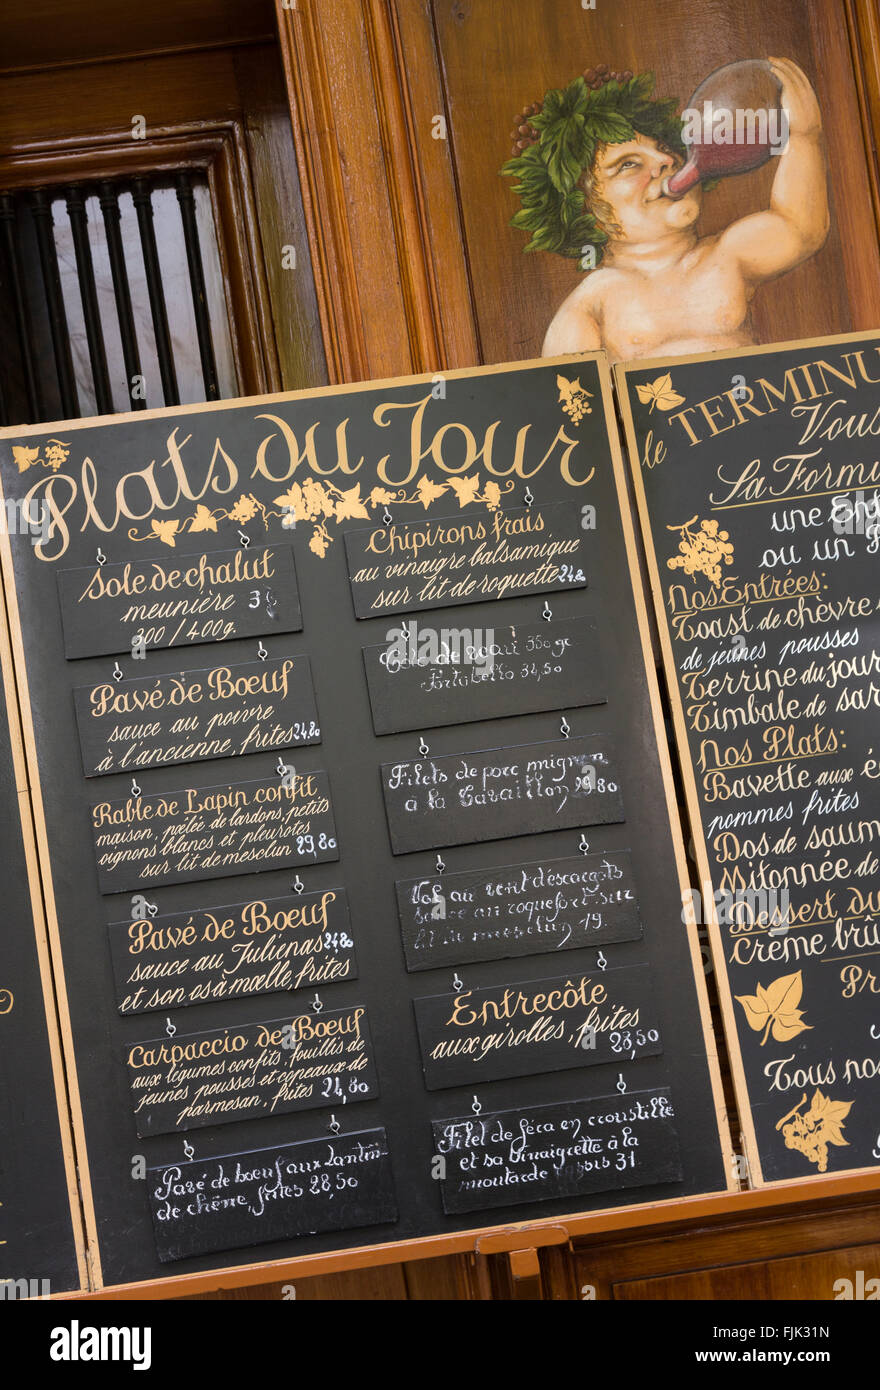 Plats du Jour
Sole de chalut
meunière
300/400g.
Pavé de Boeuf
sauce au poivre
à l'ancienne, frites 24,80
Rable de Lapin confit
maison, poêlée de lardons, petits
oignons blancs et pleurotes
sur lit de mesclun 29,80
Pavé de Boeuf
sauce au Juliénas 24,80
et son os à mœlle, frites
Carpaccio de Boeuf
aux légumes confits, fouillis de
jeunes pousses et copeaux de
parmesan, frites 24,80
Pavé de boeuf aux
de chêne, frites 28,50
Chipirons frais
au vinaigre balsamique
sur lit de roquette 24,80
de 350 gr
Portobello 34,50
Filets de porc mignon
à la 29,80
Vol au vent d'escargots
sauce au roquefort sur
lit de mesclun 19.
Entrecôte
aux girolles, frites
28,50
Filet de féra en croustille
et sa vinaigrette à la
moutarde 31
le TERMINU
Vous
La Formu
une Ent
ou un P
Nos Entrées:
Toast de chèvre
de jeunes pousses
Terrine du jour
Timbale de sar
Nos Plats:
Bavette aux é
pommes frites
Dos de saum
Mitonnée de
Dessert du
Crème brû
Pr
Tous nos
alamy
alamy
Image ID: FJK31N
www.alamy.com